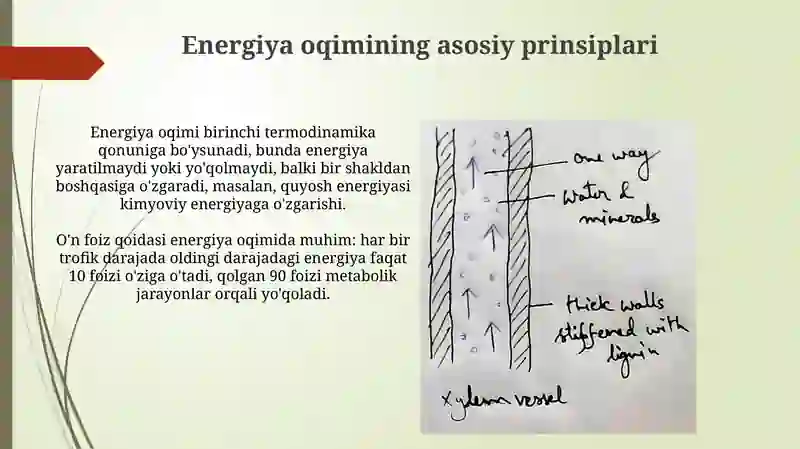 Energiya oqimining asosiy prinsiplari
Energiya oqimi birinchi termodinamika
qonuniga bo'ysunadi, bunda energiya
yaratilmaydi yoki yo'qolmaydi, balki bir shakldan
boshqasiga o'zgaradi, masalan, quyosh energiyasi
kimyoviy energiyaga o'zgarishi.
O'n foiz qoidasi energiya oqimida muhim: har bir
trofik darajada oldingi darajadagi energiya faqat
10 foizi o'ziga o'tadi, qolgan 90 foizi metabolik
jarayonlar orqali yo'qoladi.
one way
water &
minerals
thick walls
stiffened with
lignin
xylem vessel